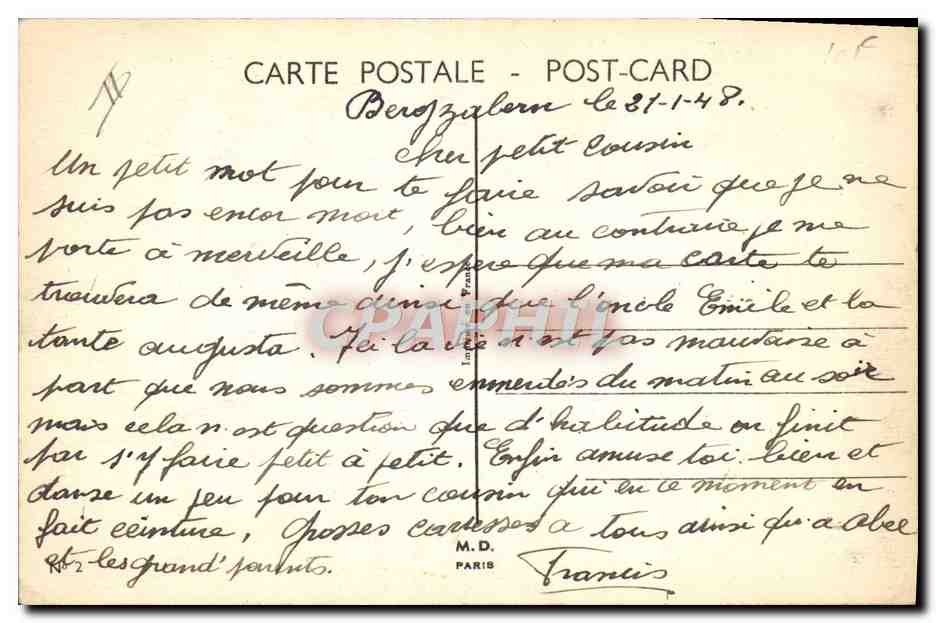 CARTE POSTALE - POST-CARD
Bergzabern le 21-1-48.
Cher petit Cousin
Un petit mot pour te faire savoir que je ne
suis pas encor mort, bien au contraire je me
porte à merveille, j'espere que ma carte te
trouvera de même ainsi que l'oncle Emile et la
tante augusta. Ici la vie n'est pas mauvaise à
part que nous sommes emmerdés du matin au soir
mais cela n'est question que d'habitude on finit
par s'y faire petit à petit. Enfin amuse toi bien et
danse un peu pour ton cousin qui en ce moment en
fait ceinture, Grosses caresses a tous ainsi qu'a Abel
et les grand'parents.
Francis
M.D.
PARIS
CPAPHIL